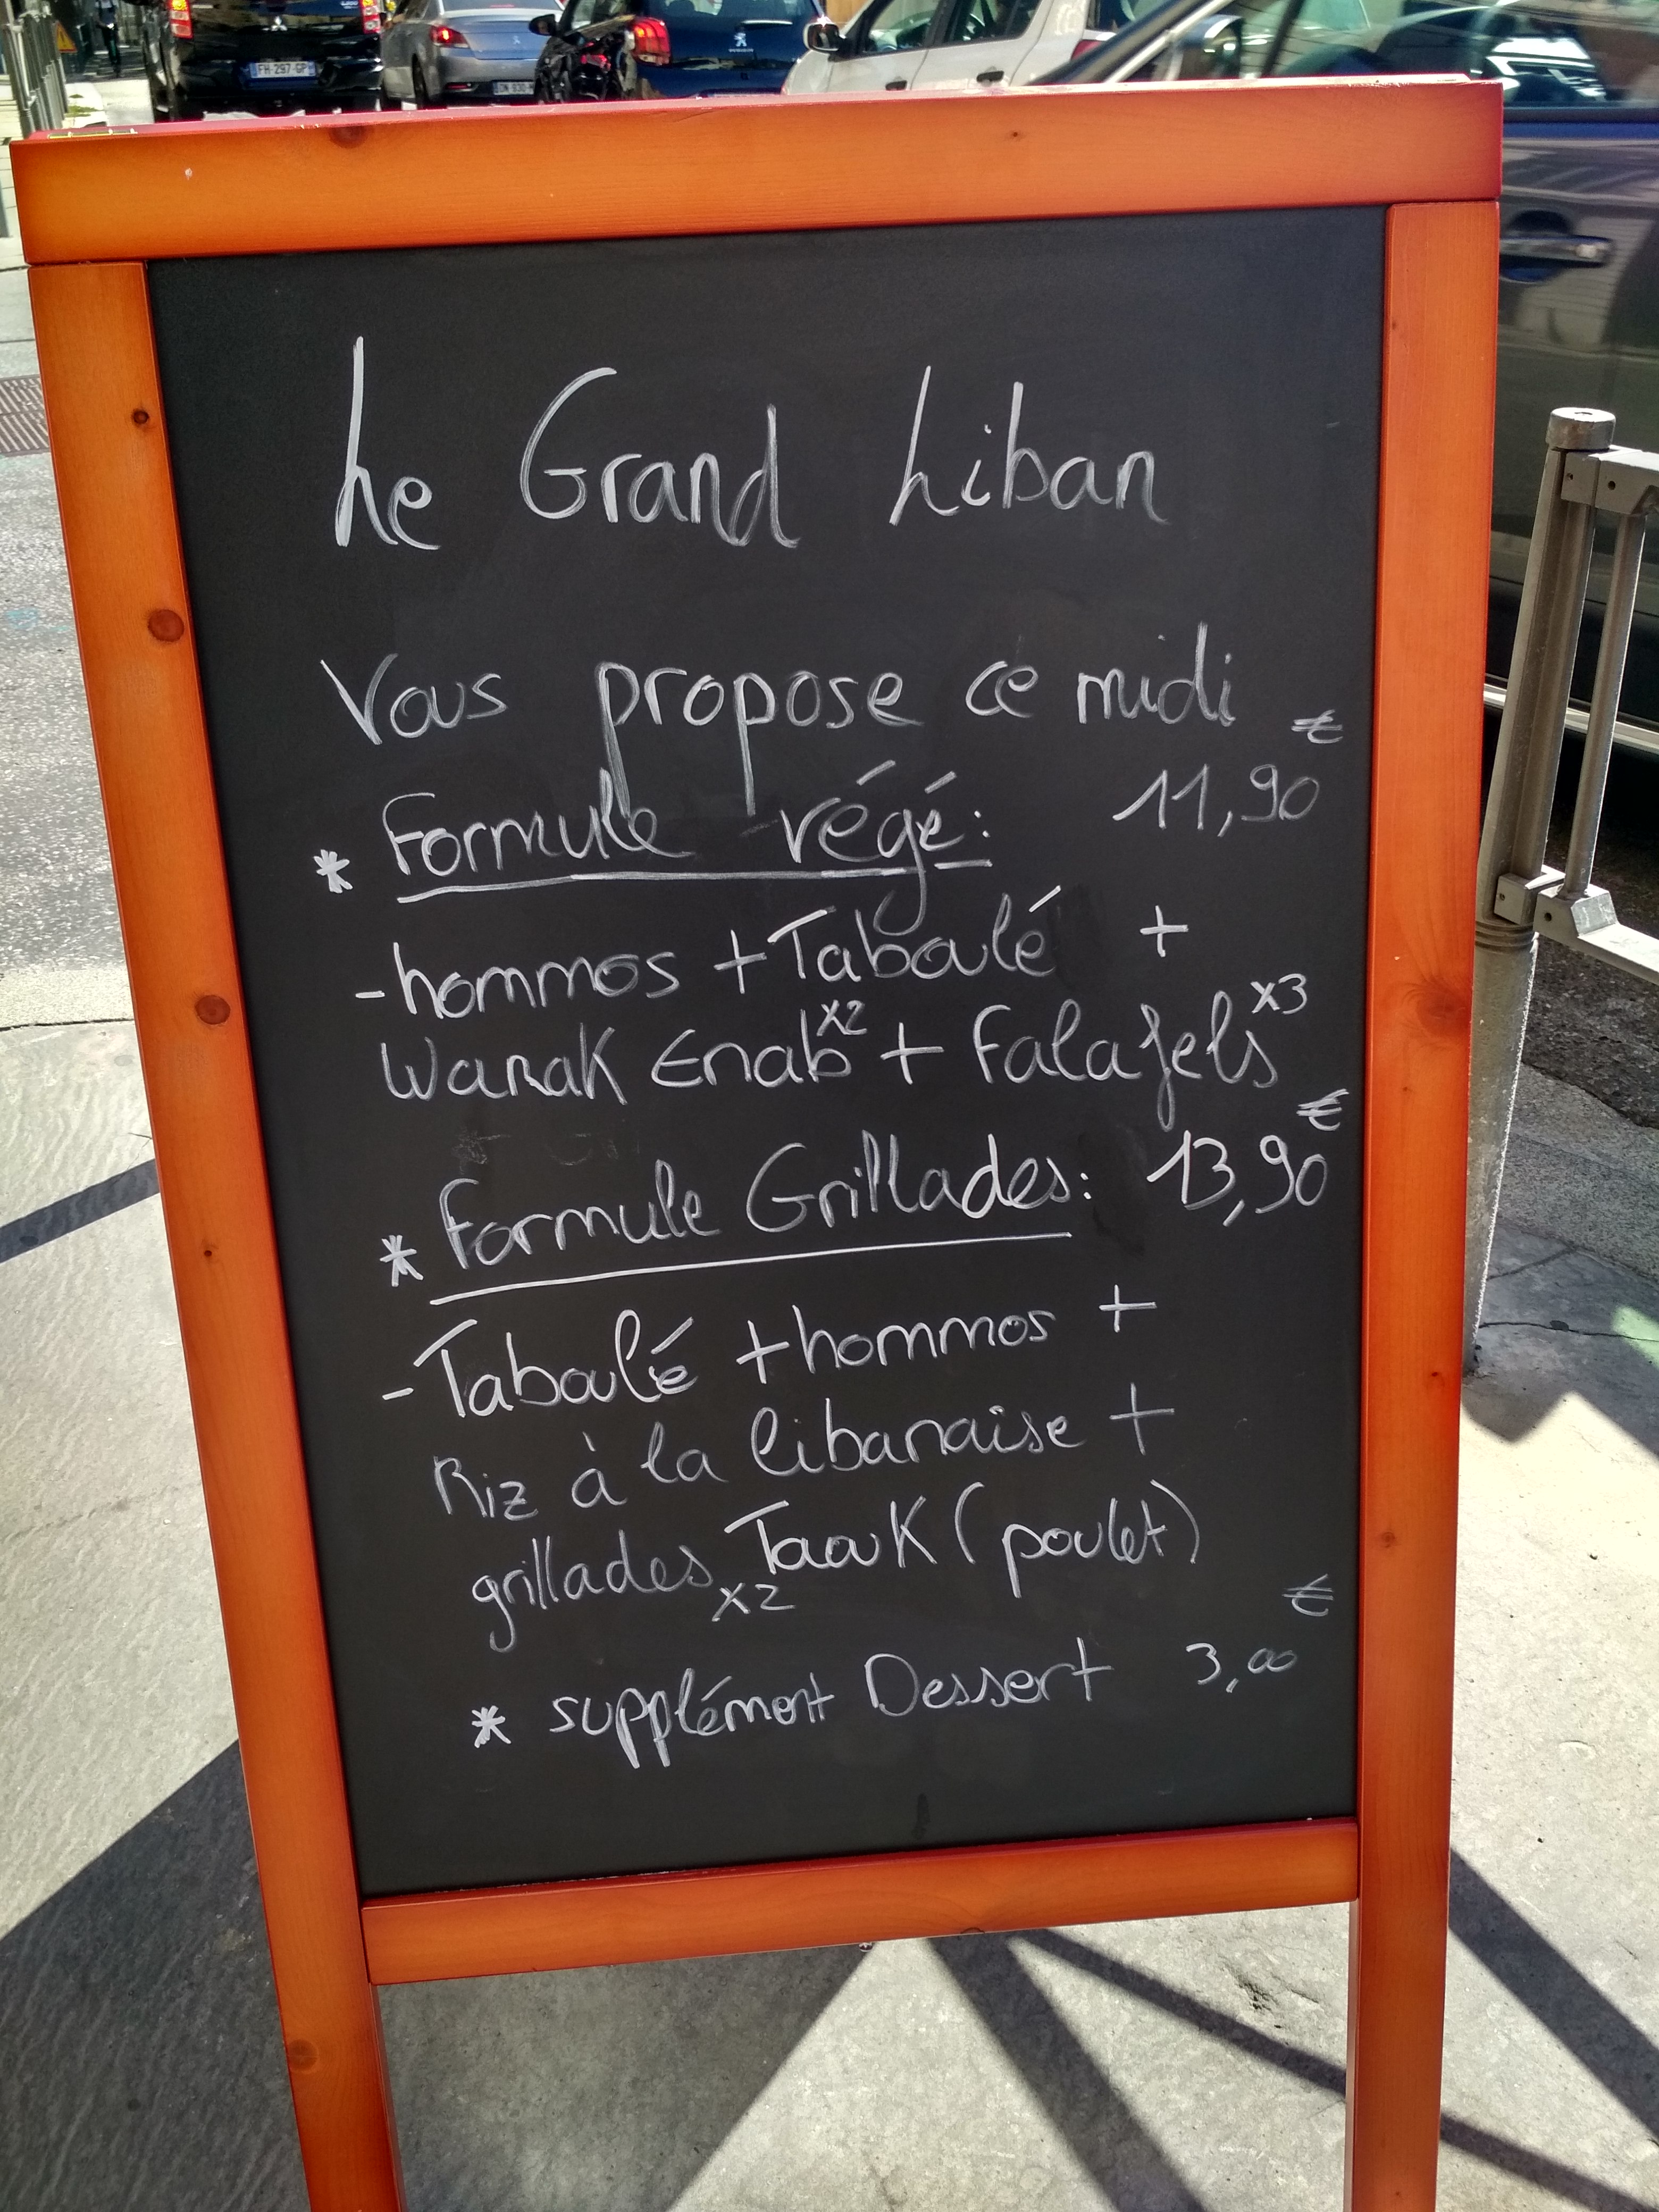 FH-297-GP
Le Grand Liban
Vous propose ce midi
* Formule végé: 11,90 €
- hommos + Taboulé +
Warak Enab x2 + Falafels x3
* Formule Grillades: 13,90 €
- Taboulé + hommos +
Riz à la libanaise +
grillades x2 Taouk (poulet)
* supplément Dessert 3,00 €